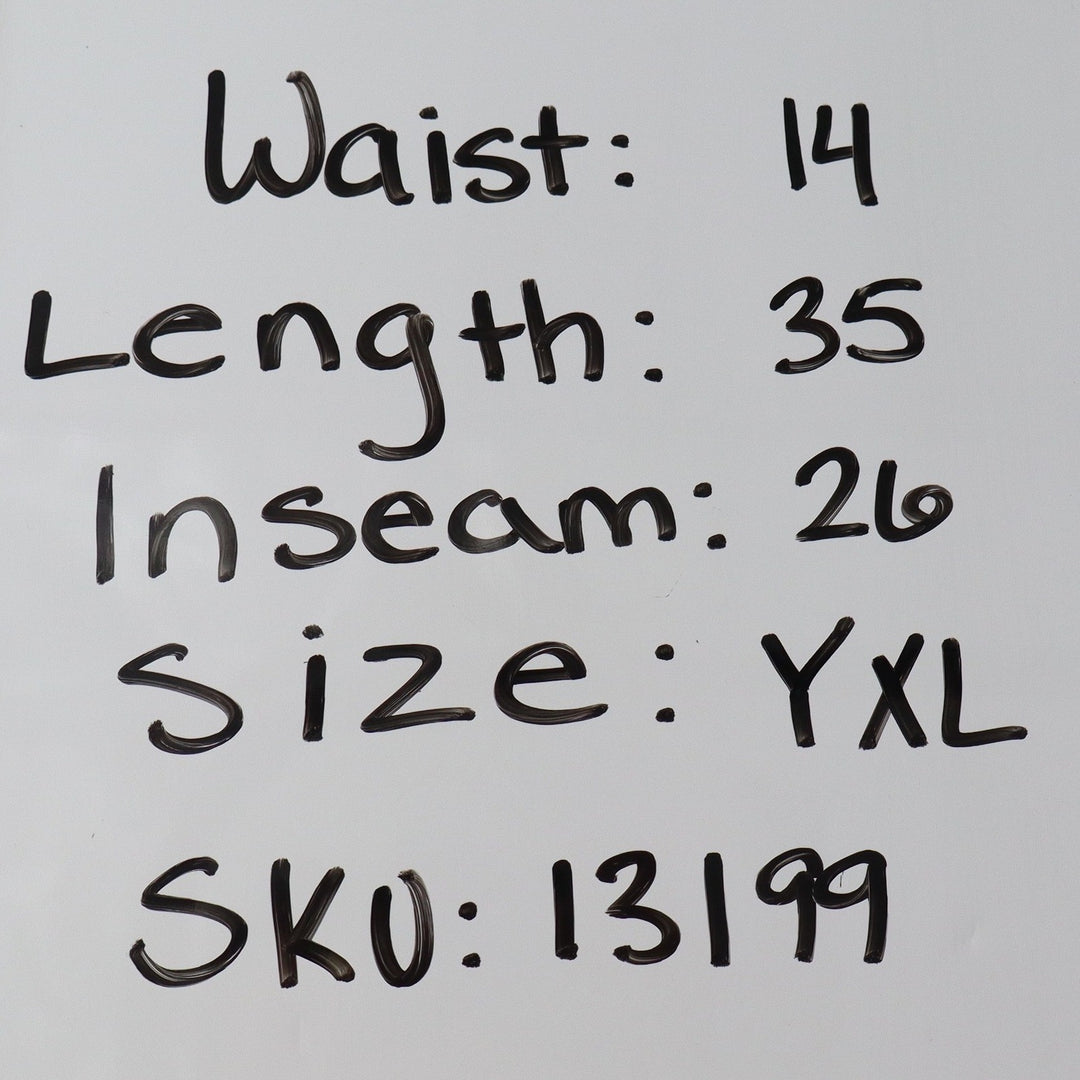 Waist: 14
Length: 35
Inseam: 26
Size: YXL
SKU: 13199